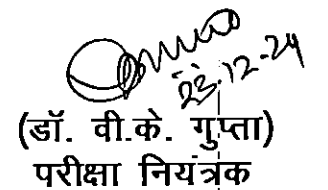 23.12.24
(डॉ. वी.के. गुप्ता)
परीक्षा नियंत्रक